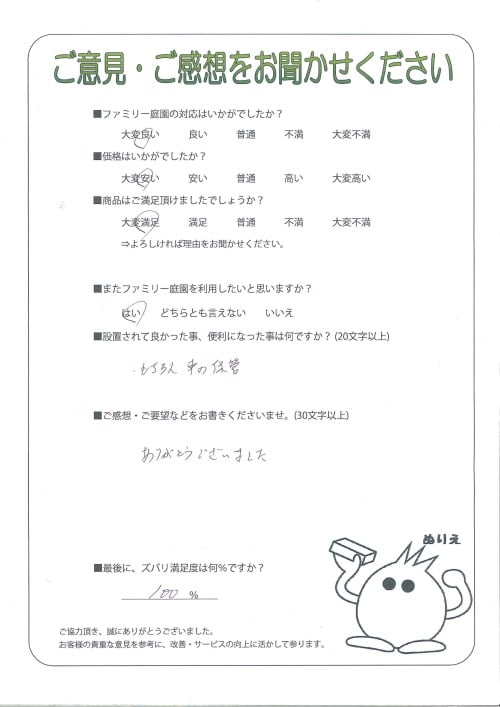 ご意見・ご感想をお聞かせください
■ファミリー庭園の対応はいかがでしたか？
大変良い 良い 普通 不満 大変不満
■価格はいかがでしたか？
大変安い 安い 普通 高い 大変高い
■商品はご満足頂けましたでしょうか？
大変満足 満足 普通 不満 大変不満
⇒よろしければ理由をお聞かせください。
■またファミリー庭園を利用したいと思いますか？
はい どちらとも言えない いいえ
■設置されて良かった事、便利になった事は何ですか？(20文字以上)
もちろん 車の保管
■ご感想・ご要望などをお書きくださいませ。(30文字以上)
ありがとうございました
ぬりえ
■最後に、ズバリ満足度は何%ですか？
100 %
ご協力頂き、誠にありがとうございました。
お客様の貴重な意見を参考に、改善・サービスの向上に活かして参ります。